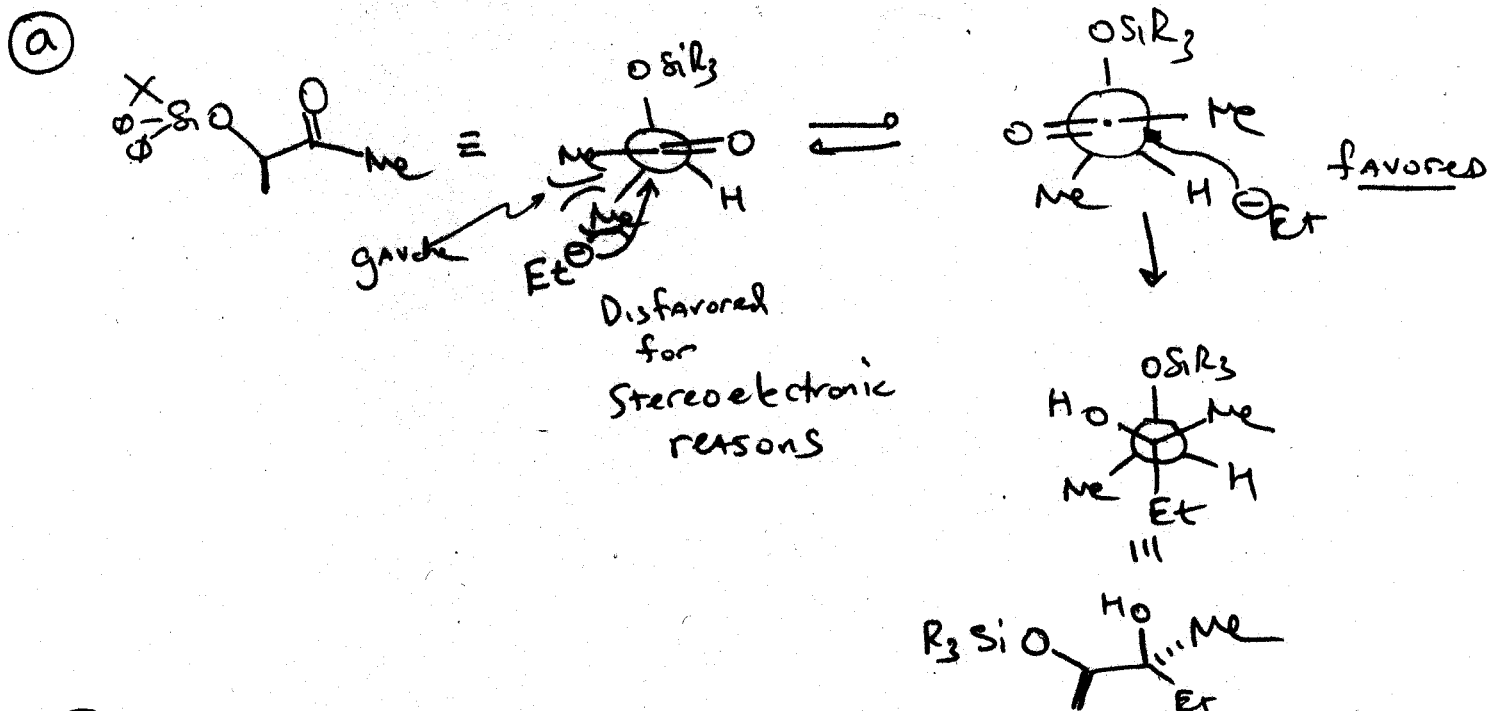 a
O
SiO
Me
≡
OSiR3
Me
O
Me
H
gauche
Et⊖
Disfavored
for
Stereoelectronic
reasons
OSiR3
O
Me
Me
H
⊖Et
favored
OSiR3
HO
Me
Me
H
Et
≡
HO
R3SiO
Me
Et